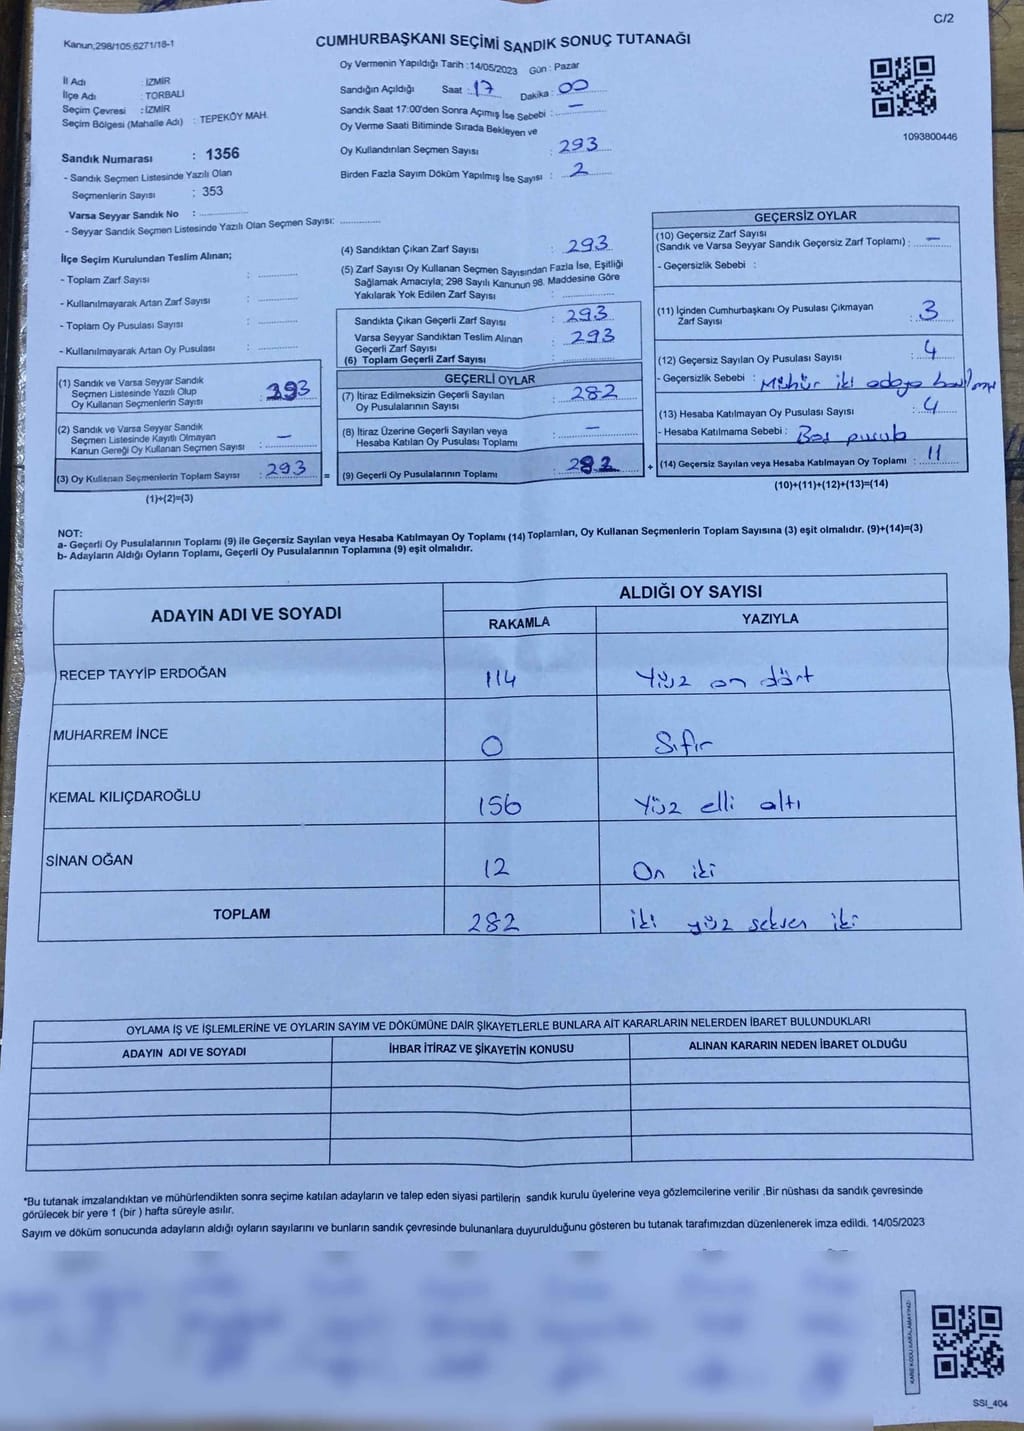 C/2
Kanun;298/105;6271/18-1
CUMHURBAŞKANI SEÇİMİ SANDIK SONUÇ TUTANAĞI
Oy Vermenin Yapıldığı Tarih :14/05/2023 Gün : Pazar
İl Adı : İZMİR
İlçe Adı : TORBALI
Seçim Çevresi : İZMİR
Seçim Bölgesi (Mahalle Adı) : TEPEKÖY MAH.
Sandığın Açıldığı Saat : 17 Dakika : 00
Sandık Saat 17:00'den Sonra Açımış İse Sebebi : —
Oy Verme Saati Bitiminde Sırada Bekleyen ve
Oy Kullandırılan Seçmen Sayısı : 293
Birden Fazla Sayım Döküm Yapılmış İse Sayısı : 2
1093800446
Sandık Numarası : 1356
- Sandık Seçmen Listesinde Yazılı Olan
Seçmenlerin Sayısı : 353
Varsa Seyyar Sandık No :
- Seyyar Sandık Seçmen Listesinde Yazılı Olan Seçmen Sayısı:
İlçe Seçim Kurulundan Teslim Alınan;
- Toplam Zarf Sayısı :
- Kullanılmayarak Artan Zarf Sayısı :
- Toplam Oy Pusulası Sayısı :
- Kullanılmayarak Artan Oy Pusulası :
(1) Sandık ve Varsa Seyyar Sandık
Seçmen Listesinde Yazılı Olup
Oy Kullanan Seçmenlerin Sayısı : 293
(2) Sandık ve Varsa Seyyar Sandık
Seçmen Listesinde Kayıtlı Olmayan
Kanun Gereği Oy Kullanan Seçmen Sayısı : —
(3) Oy Kullanan Seçmenlerin Toplam Sayısı : 293 =
(1)+(2)=(3)
(4) Sandıktan Çıkan Zarf Sayısı : 293
(5) Zarf Sayısı Oy Kullanan Seçmen Sayısından Fazla İse, Eşitliği
Sağlamak Amacıyla; 298 Sayılı Kanunun 98. Maddesine Göre
Yakılarak Yok Edilen Zarf Sayısı :
Sandıkta Çıkan Geçerli Zarf Sayısı : 293
Varsa Seyyar Sandıktan Teslim Alınan
Geçerli Zarf Sayısı : 293
(6) Toplam Geçerli Zarf Sayısı :
GEÇERLİ OYLAR
(7) İtiraz Edilmeksizin Geçerli Sayılan
Oy Pusulalarının Sayısı : 282
(8) İtiraz Üzerine Geçerli Sayılan veya
Hesaba Katılan Oy Pusulası Toplamı : —
(9) Geçerli Oy Pusulalarının Toplamı : 282 +
GEÇERSİZ OYLAR
(10) Geçersiz Zarf Sayısı
(Sandık ve Varsa Seyyar Sandık Geçersiz Zarf Toplamı) : —
- Geçersizlik Sebebi :
(11) İçinden Cumhurbaşkanı Oy Pusulası Çıkmayan
Zarf Sayısı : 3
(12) Geçersiz Sayılan Oy Pusulası Sayısı : 4
- Geçersizlik Sebebi : Mühür iki adaya
(13) Hesaba Katılmayan Oy Pusulası Sayısı : 4
- Hesaba Katılmama Sebebi : Boş
(14) Geçersiz Sayılan veya Hesaba Katılmayan Oy Toplamı : 11
(10)+(11)+(12)+(13)=(14)
NOT:
a- Geçerli Oy Pusulalarının Toplamı (9) ile Geçersiz Sayılan veya Hesaba Katılmayan Oy Toplamı (14) Toplamları, Oy Kullanan Seçmenlerin Toplam Sayısına (3) eşit olmalıdır. (9)+(14)=(3)
b- Adayların Aldığı Oyların Toplamı, Geçerli Oy Pusulalarının Toplamına (9) eşit olmalıdır.
ADAYIN ADI VE SOYADI ALDIĞI OY SAYISI
RAKAMLA YAZIYLA
RECEP TAYYİP ERDOĞAN 114 Yüz on dört
MUHARREM İNCE 0 Sıfır
KEMAL KILIÇDAROĞLU 156 Yüz elli altı
SİNAN OĞAN 12 On iki
TOPLAM 282 iki yüz seksen iki
OYLAMA İŞ VE İŞLEMLERİNE VE OYLARIN SAYIM VE DÖKÜMÜNE DAİR ŞİKAYETLERLE BUNLARA AİT KARARLARIN NELERDEN İBARET BULUNDUKLARI
ADAYIN ADI VE SOYADI İHBAR İTİRAZ VE ŞİKAYETİN KONUSU ALINAN KARARIN NEDEN İBARET OLDUĞU
*Bu tutanak imzalandıktan ve mühürlendikten sonra seçime katılan adayların ve talep eden siyasi partilerin sandık kurulu üyelerine veya gözlemcilerine verilir .Bir nüshası da sandık çevresinde
görülecek bir yere 1 (bir ) hafta süreyle asılır.
Sayım ve döküm sonucunda adayların aldığı oyların sayılarını ve bunların sandık çevresinde bulunanlara duyurulduğunu gösteren bu tutanak tarafımızdan düzenlenerek imza edildi. 14/05/2023
KARE KODU KARALAMAYINIZ!
SSI_404